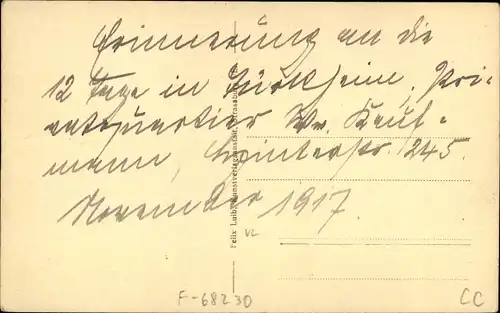 Erinnerung an die
12 Tage in Türkheim, Pri-
vatquartier Ww. Kauf-
mann, Winterstr. 245.
November 1917.
Felix Luib, Kunstverlagsanstalt, Strassburg
VL
F-68230
CC